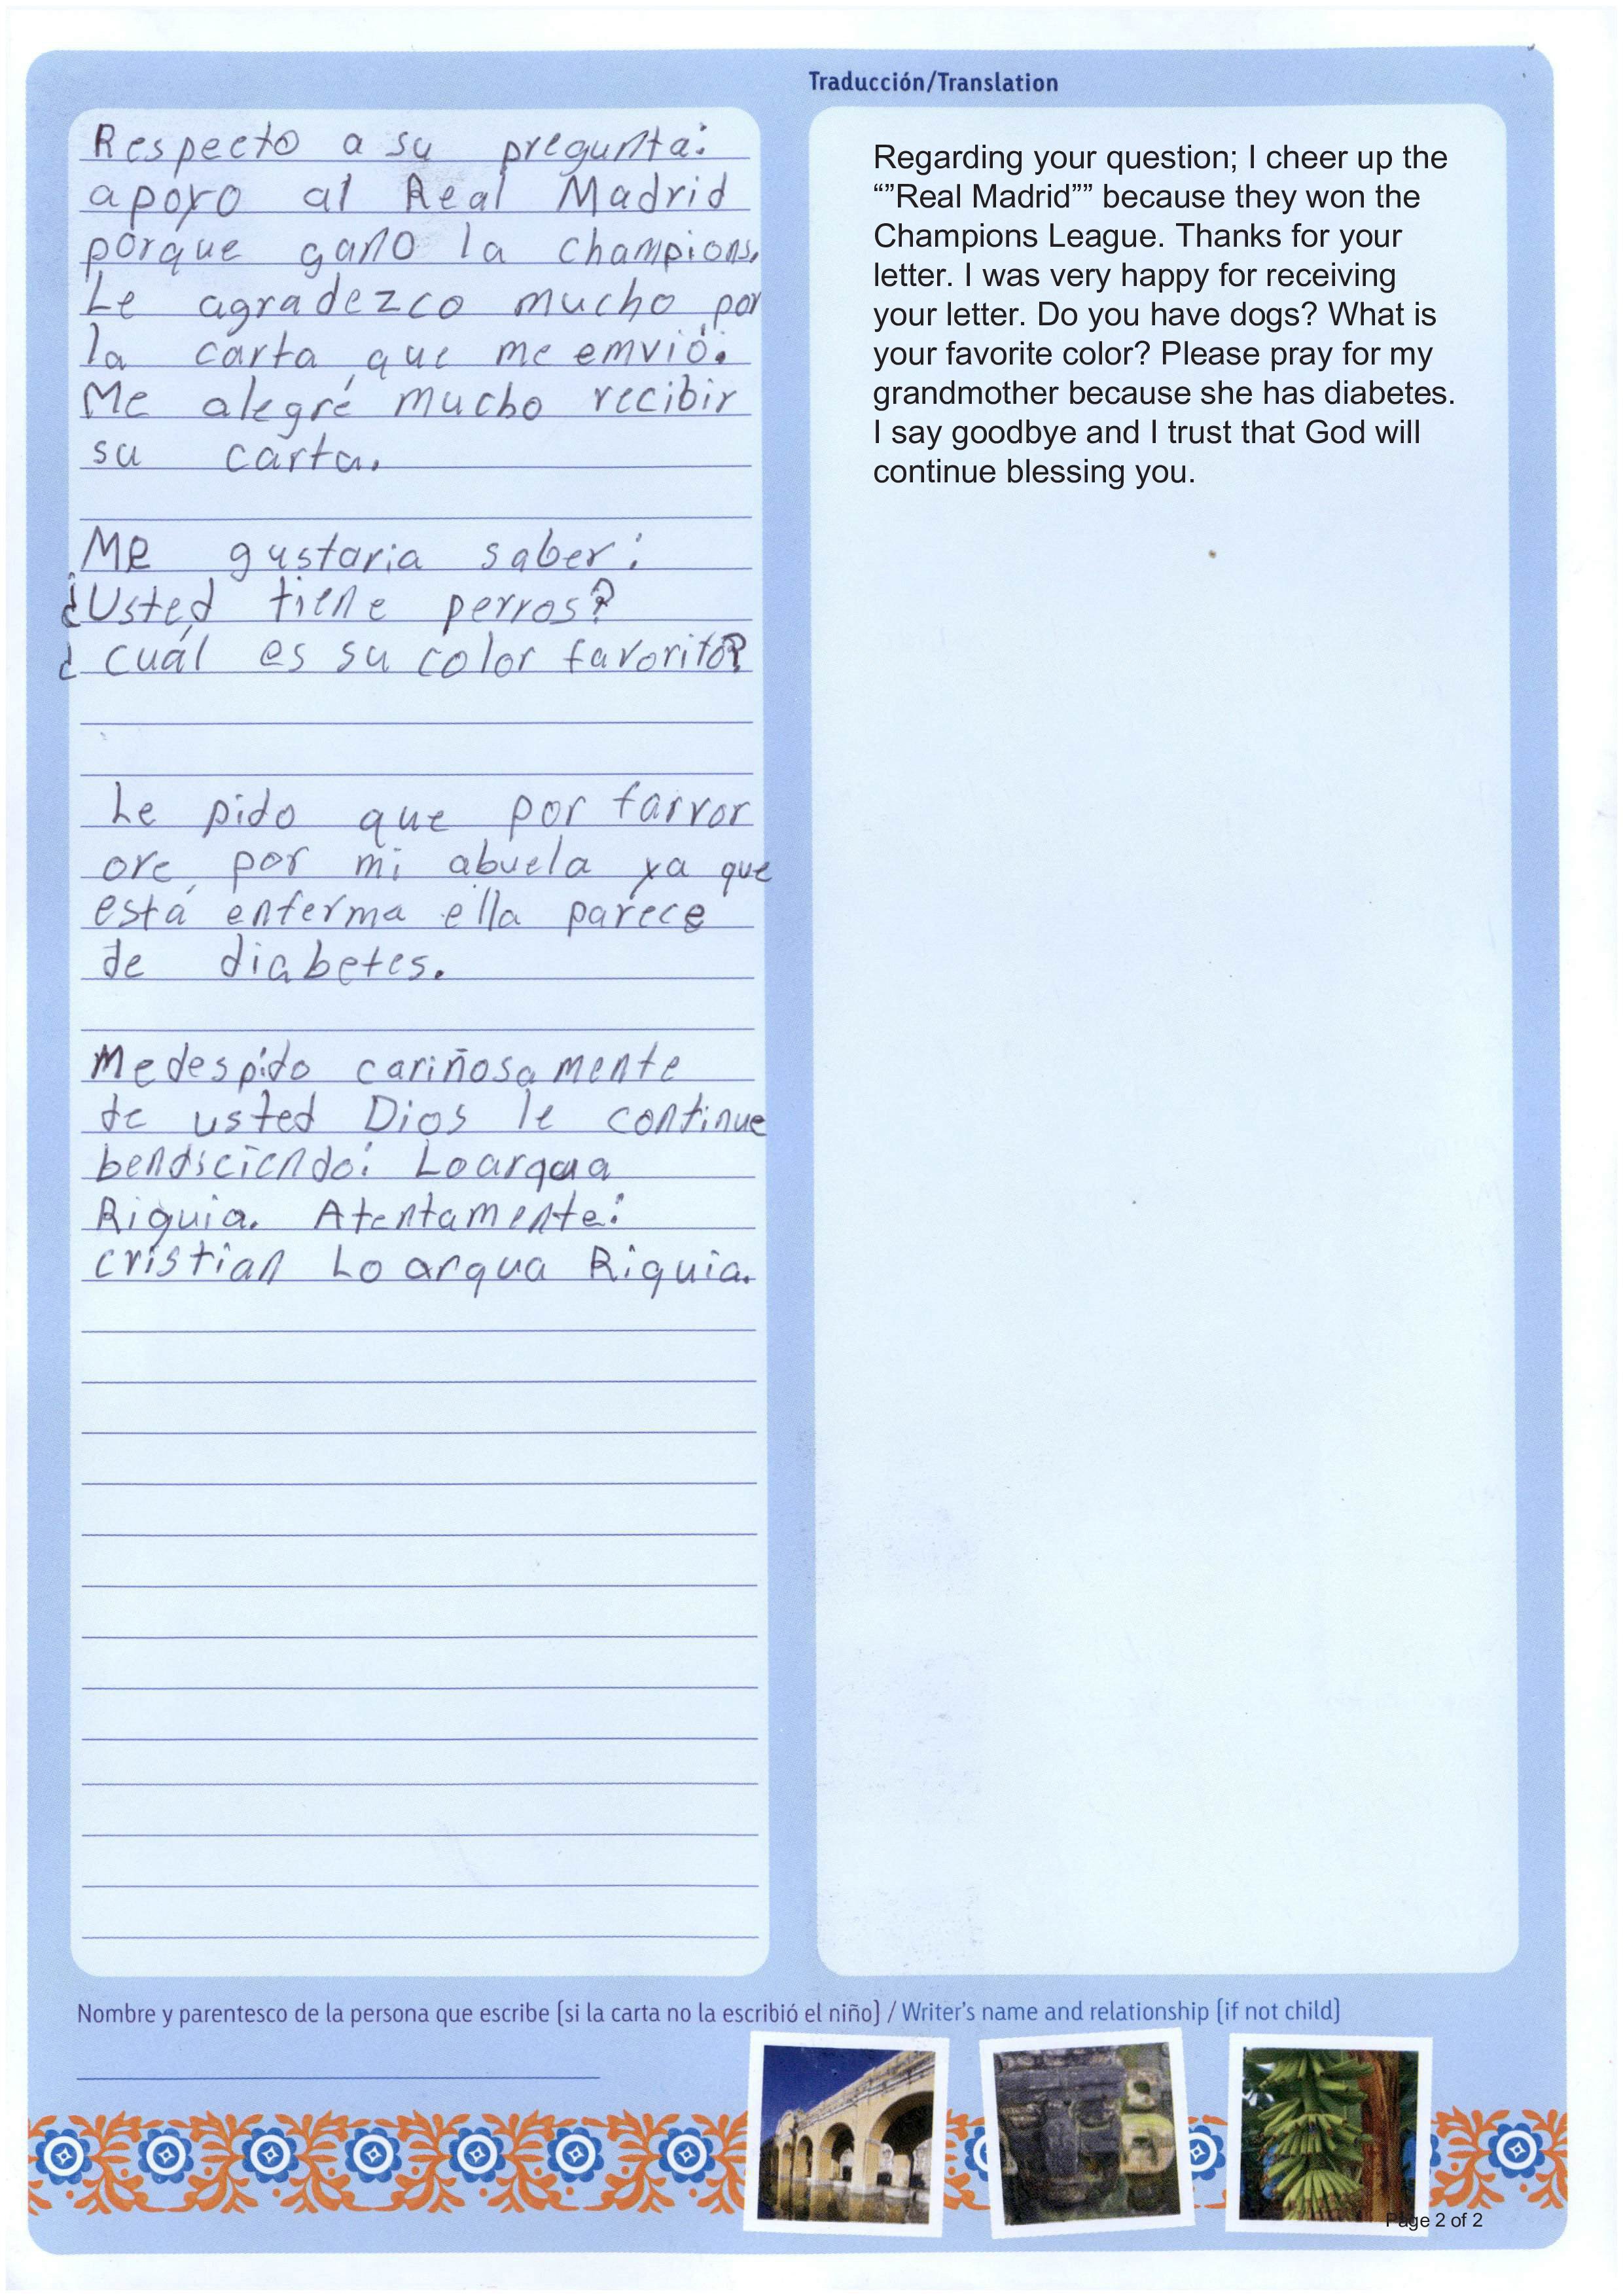 Traducción/Translation
Respecto a su pregunta:
apoyo al Real Madrid
porque gano la champions.
Le agradezco mucho por
la carta que me emvió.
Me alegré mucho recibir
su carta.
Me gustaria saber:
¿Usted tiene perros?
¿cuál es su color favorito?
Le pido que por farvor
ore por mi abuela ya que
está enferma ella parece
de diabetes.
Me despido cariñosamente
de usted Dios le continue
bendiciendo: Loarqua
Riquia. Atentamente:
cristian Loarqua Riquia.
Regarding your question; I cheer up the
“”Real Madrid”” because they won the
Champions League. Thanks for your
letter. I was very happy for receiving
your letter. Do you have dogs? What is
your favorite color? Please pray for my
grandmother because she has diabetes.
I say goodbye and I trust that God will
continue blessing you.
Nombre y parentesco de la persona que escribe (si la carta no la escribió el niño) / Writer's name and relationship (if not child)
Page 2 of 2